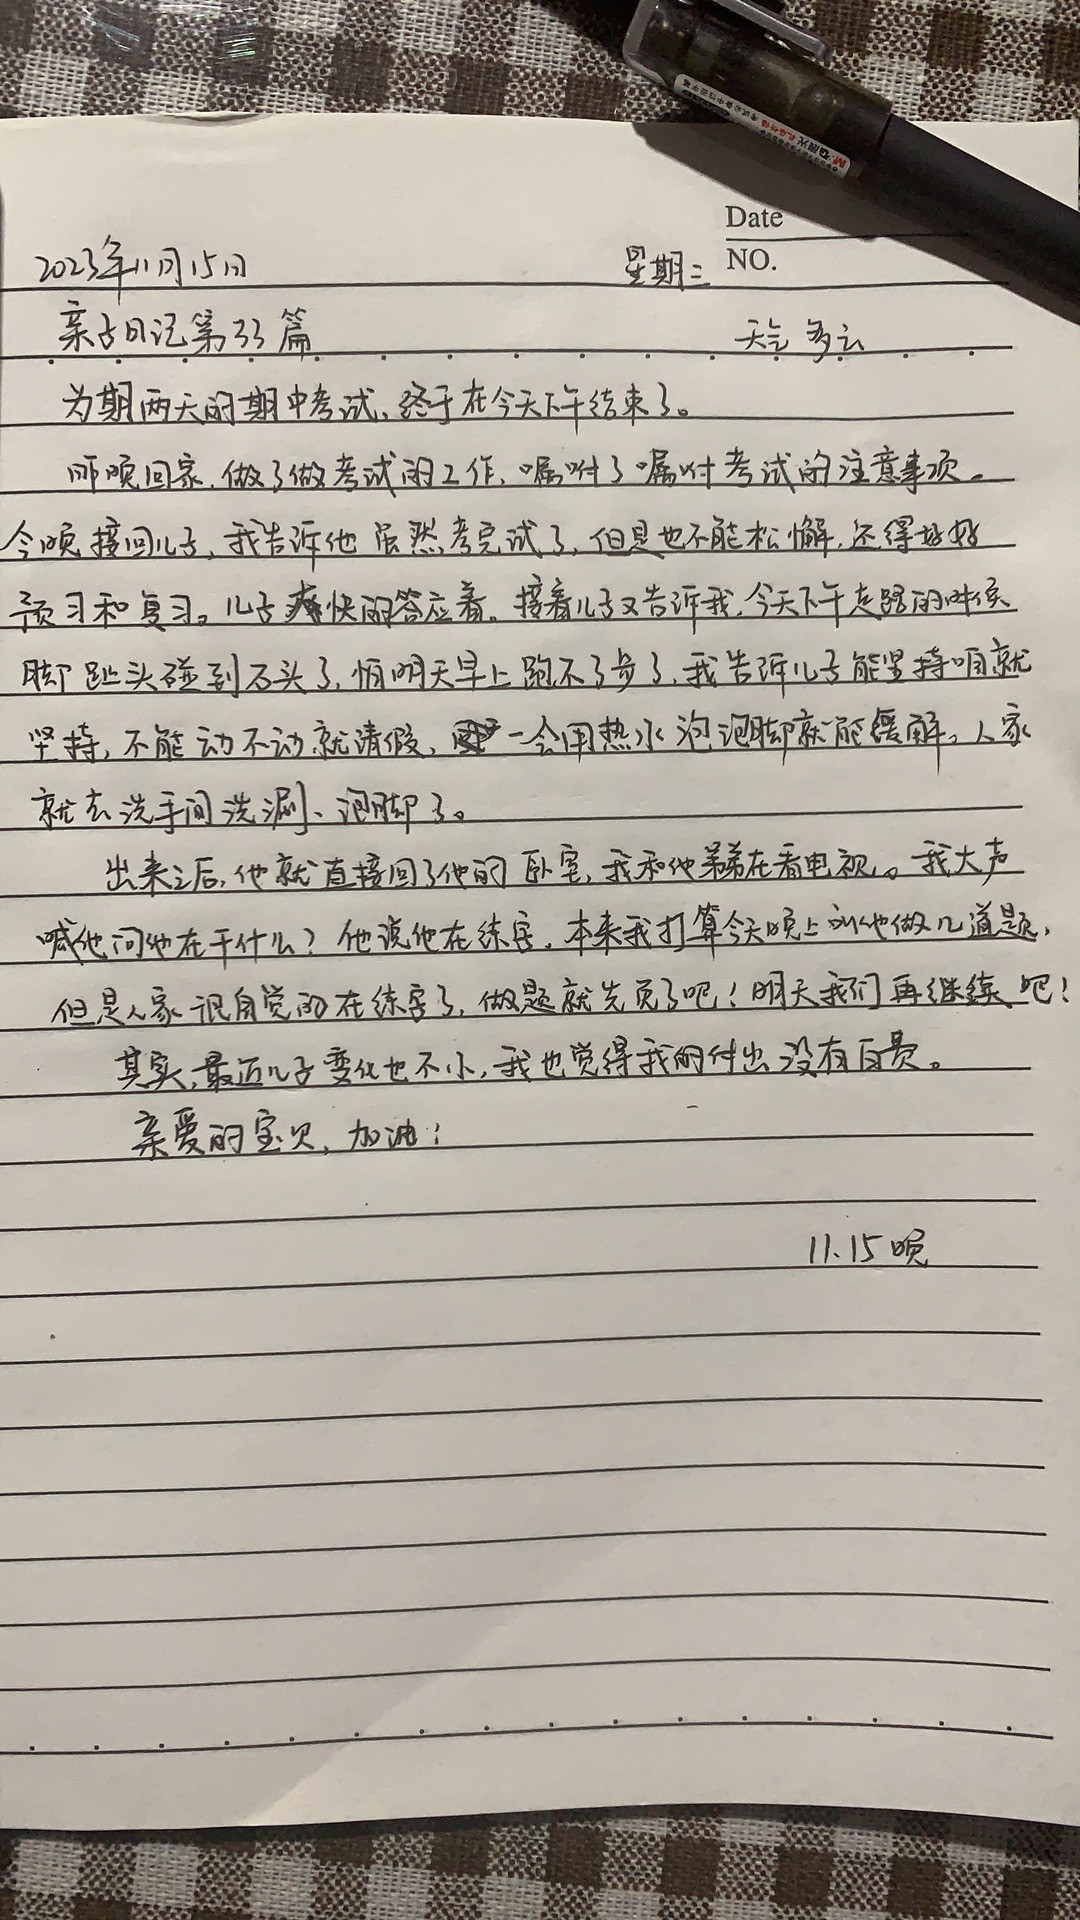 Date
2023年11月15日 星期三 NO.
亲子日记第33篇 天气 多云
为期两天的期中考试,终于在今天下午结束了。
昨晚回家,做了做考试的工作,嘱咐了嘱咐考试的注意事项。
今晚接回儿子,我告诉他虽然考完试了,但是也不能松懈,还得好好
预习和复习。儿子爽快的答应着。接着儿子又告诉我,今天下午走路的时候
脚趾头碰到石头了,怕明天早上跑不了步了,我告诉儿子能坚持咱就
坚持,不能动不动就请假,一会用热水泡泡脚就能缓解。人家
就去洗手间洗漱、泡脚了。
出来之后,他就直接回了他的卧室,我和他弟弟在看电视。我大声
喊他问他在干什么?他说他在练字,本来我打算今天晚上叫他做几道题,
但是人家很自觉的在练字了,做题就先免了吧!明天我们再继续吧!
其实,最近儿子变化也不小,我也觉得我的付出没有白费。
亲爱的宝贝,加油!
11.15 晚